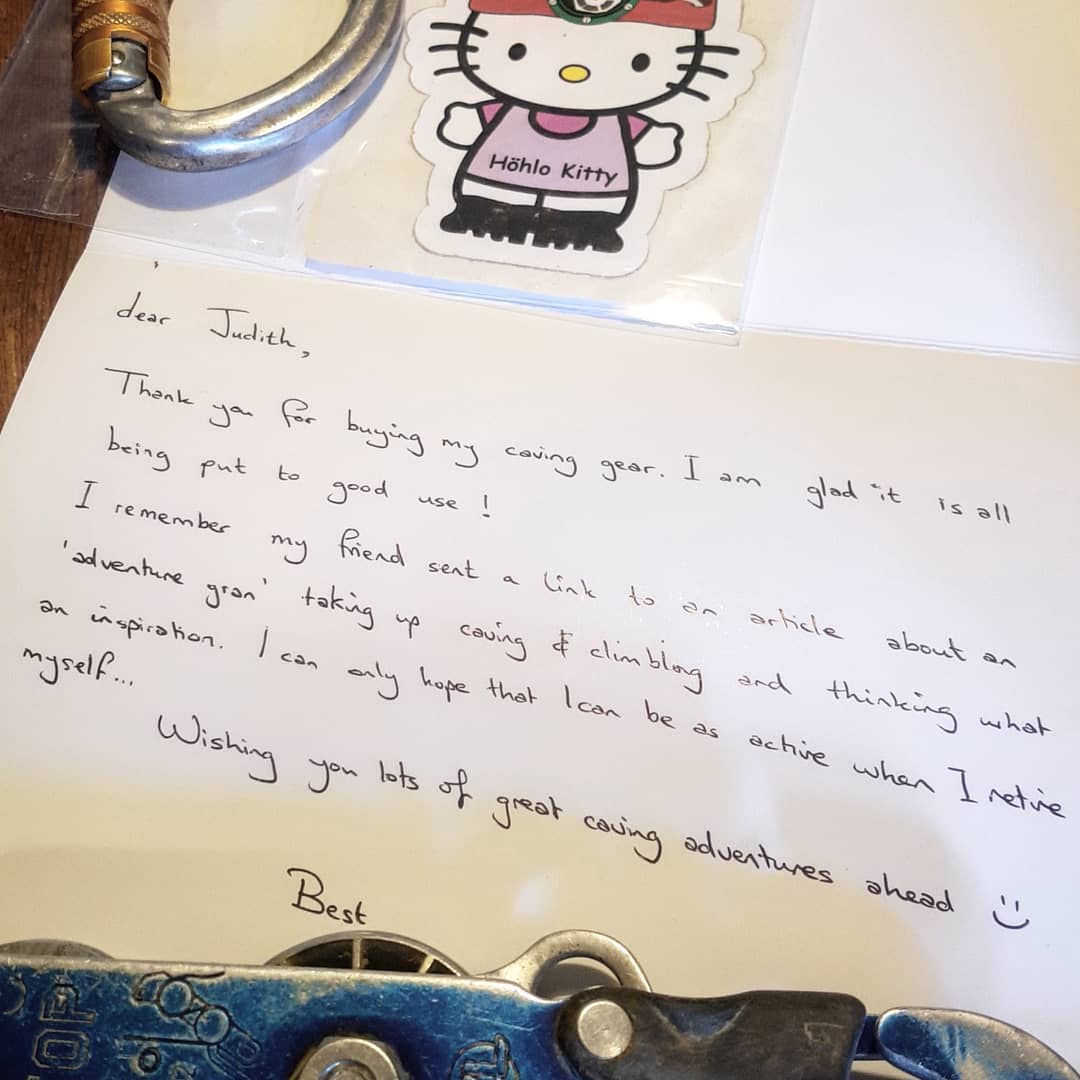 Höhlo Kitty
dear Judith,
Thank you for buying my caving gear. I am glad it is all
being put to good use !
I remember my friend sent a link to an article about an
'adventure gran' taking up caving & climbing and thinking what
an inspiration. I can only hope that I can be as active when I retire
myself...
Wishing you lots of great caving adventures ahead :)
Best
TOP